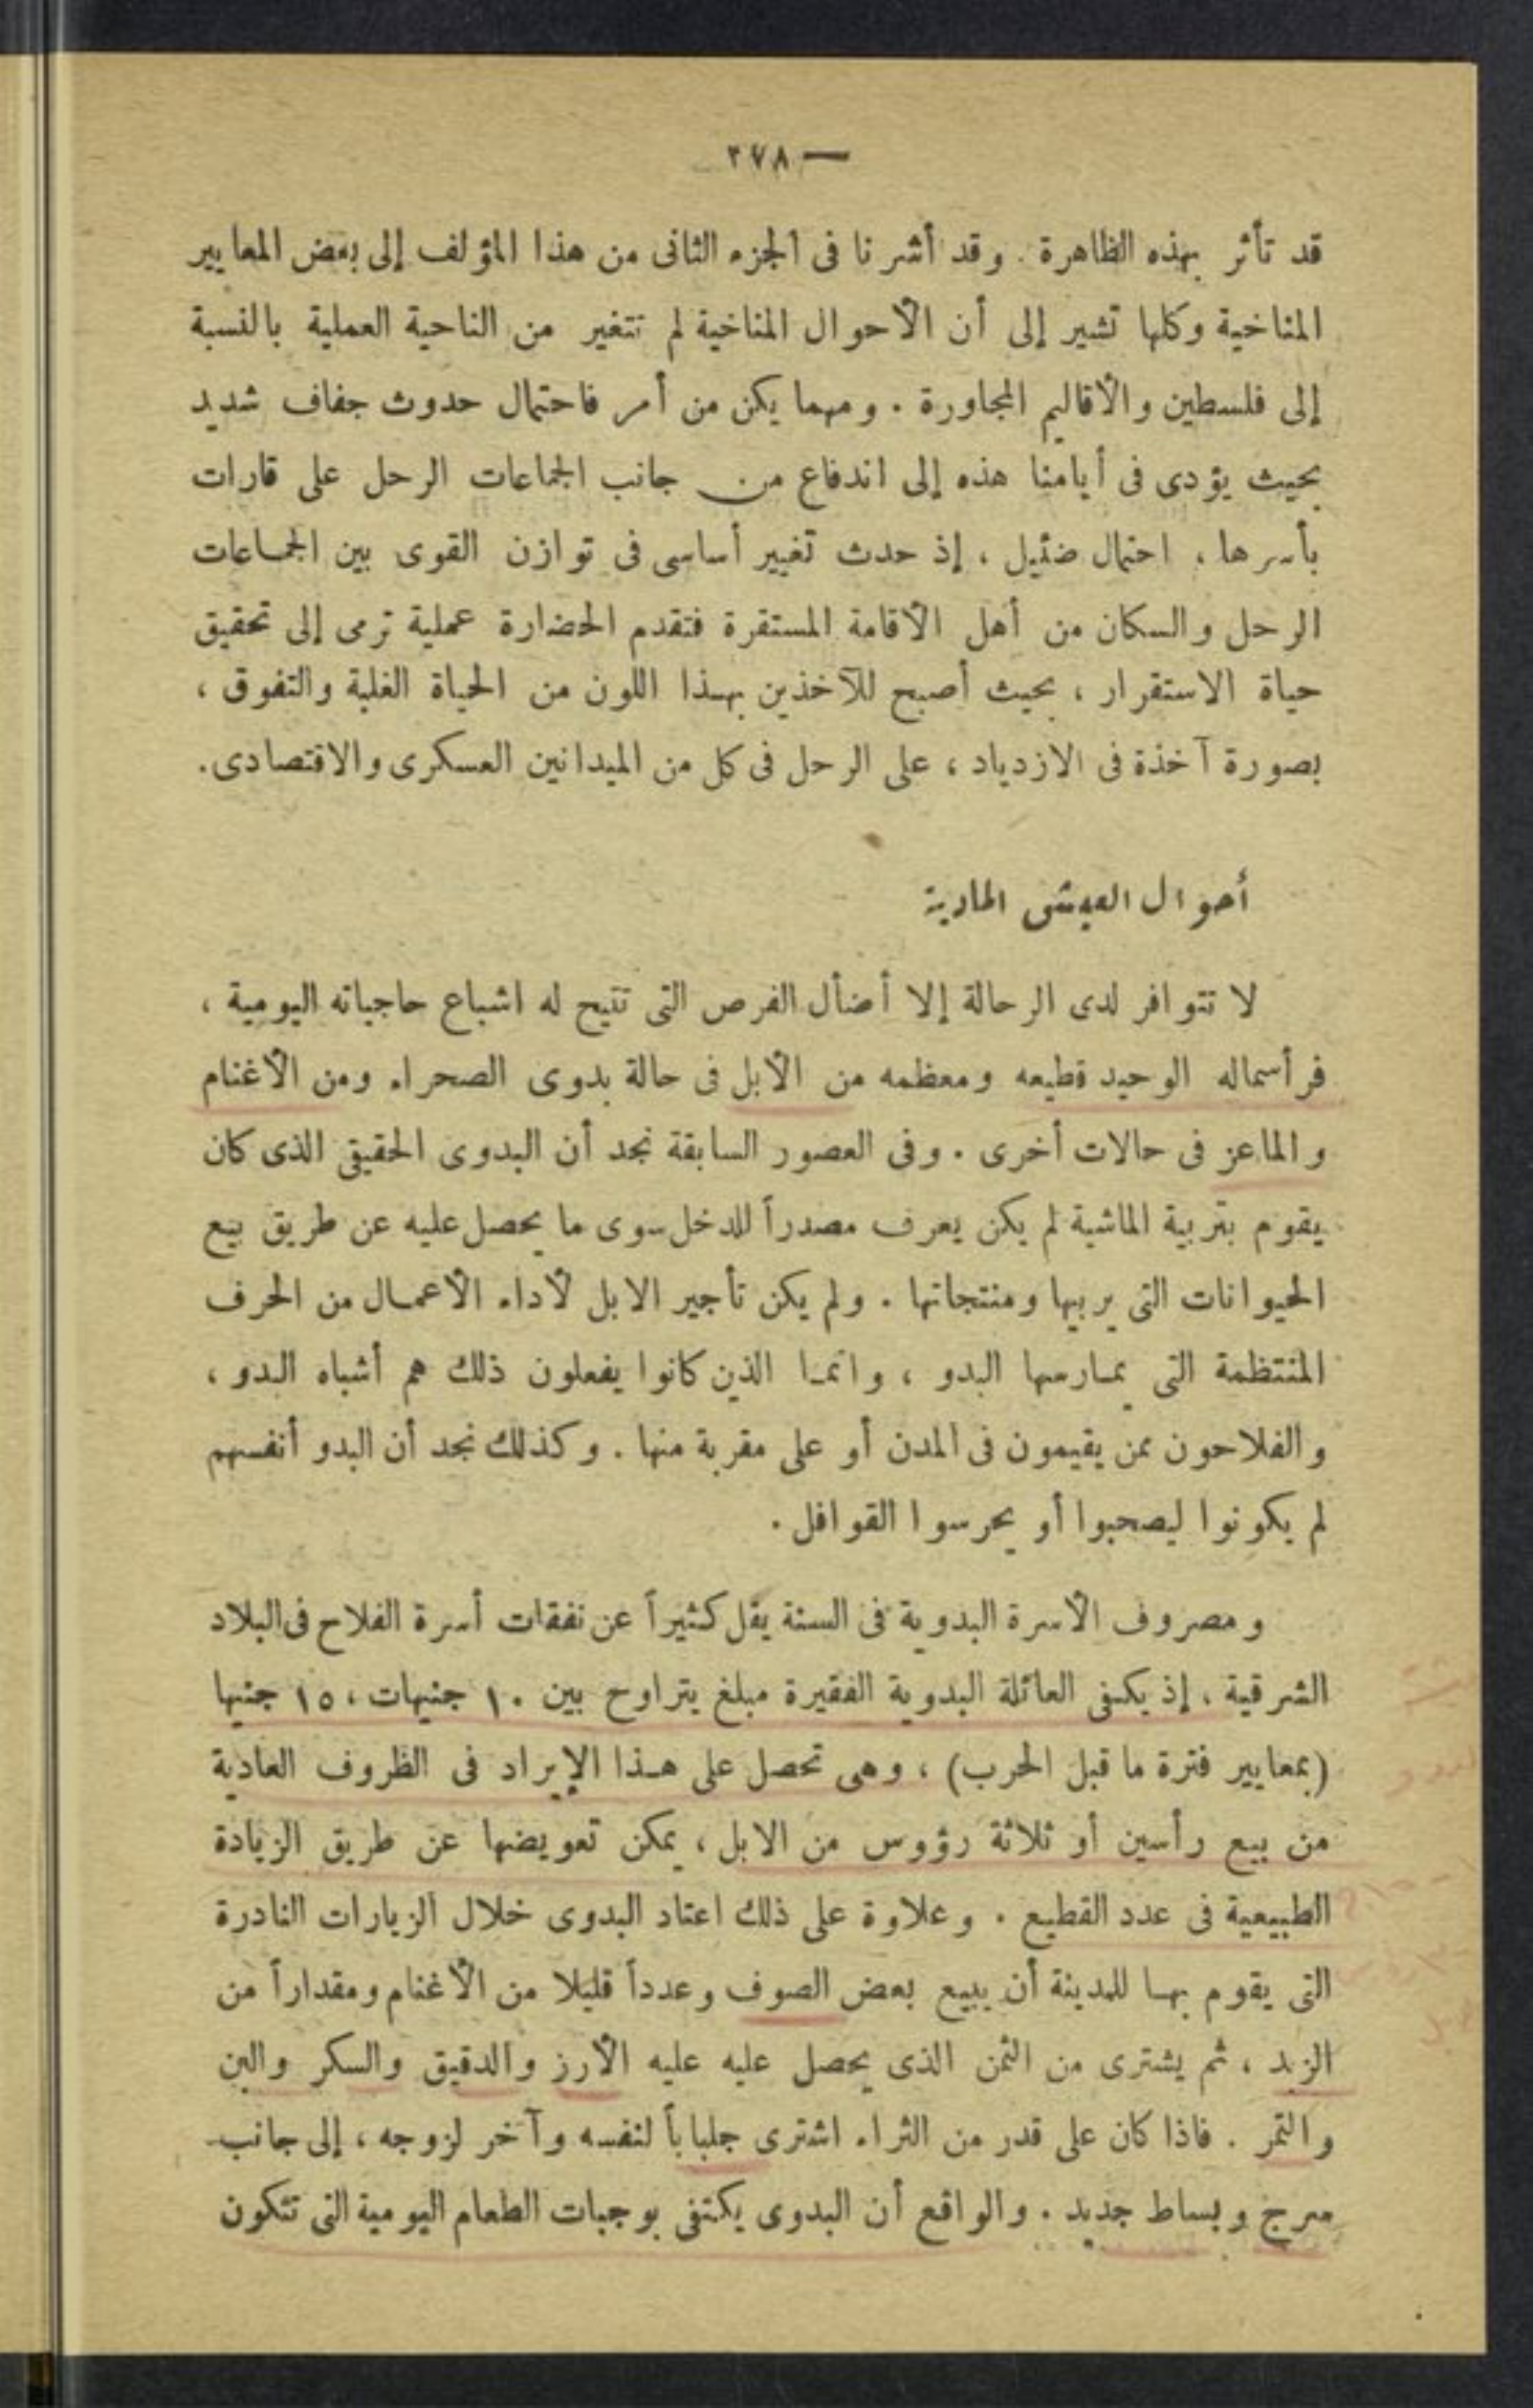 — ٢٧٨ —
قد تأثر بهذه الظاهرة . وقد أشرنا فى الجزء الثانى من هذا المؤلف إلى بعض المعايير
المناخية وكلها تشير إلى أن الأحوال المناخية لم تتغير من الناحية العملية بالنسبة
إلى فلسطين والأقاليم المجاورة . ومهما يكن من أمر فاحتمال حدوث جفاف شديد
بحيث يؤدى فى أيامنا هذه إلى اندفاع من جانب الجماعات الرحل على قارات
بأسرها ، احتمال ضئيل ، إذ حدث تغيير أساسى فى توازن القوى بين الجماعات
الرحل والسكان من أهل الأقامة المستقرة فتقدم الحضارة عملية ترمى إلى تحقيق
حياة الاستقرار ، بحيث أصبح للآخذين بهذا اللون من الحياة الغلبة والتفوق ،
بصورة آخذة فى الازدياد ، على الرحل فى كل من الميدانين العسكرى والاقتصادى .
أحوال العيش المادية
لا تتوافر لدى الرحالة إلا أضأل الفرص التى تتيح له اشباع حاجياته اليومية ،
فرأسماله الوحيد قطيعه ومعظمه من الأبل فى حالة بدوى الصحراء ومن الأغنام
والماعز فى حالات أخرى . وفى العصور السابقة نجد أن البدوى الحقيقى الذى كان
يقوم بتربية الماشية لم يكن يعرف مصدراً للدخل سوى ما يحصل عليه عن طريق بيع
الحيوانات التى يربيها ومنتجاتها . ولم يكن تأجير الابل لأداء الأعمال من الحرف
المنتظمة التى يمارسها البدو ، وانما الذين كانوا يفعلون ذلك هم أشباه البدو ،
والفلاحون ممن يقيمون فى المدن أو على مقربة منها . وكذلك نجد أن البدو أنفسهم
لم يكونوا ليصحبوا أو يحرسوا القوافل .
ومصروف الأسرة البدوية فى السنة يقل كثيراً عن نفقات أسرة الفلاح فى البلاد
الشرقية ، إذ يكفى العائلة البدوية الفقيرة مبلغ يتراوح بين ١٠ جنيهات ، ١٥ جنيها
(بمعايير فترة ما قبل الحرب) ، وهى تحصل على هذا الإيراد فى الظروف العادية
من بيع رأسين أو ثلاثة رؤوس من الابل ، يمكن تعويضها عن طريق الزيادة
الطبيعية فى عدد القطيع . وعلاوة على ذلك اعتاد البدوى خلال الزيارات النادرة
التى يقوم بها للمدينة أن يبيع بعض الصوف وعدداً قليلا من الأغنام ومقداراً من
الزبد ، ثم يشترى من الثمن الذى يحصل عليه عليه الأرز والدقيق والسكر والبن
والتمر . فاذا كان على قدر من الثراء اشترى جلباباً لنفسه وآخر لزوجه ، إلى جانب
سرج وبساط جديد . والواقع أن البدوى يكتفى بوجبات الطعام اليومية التى تتكون